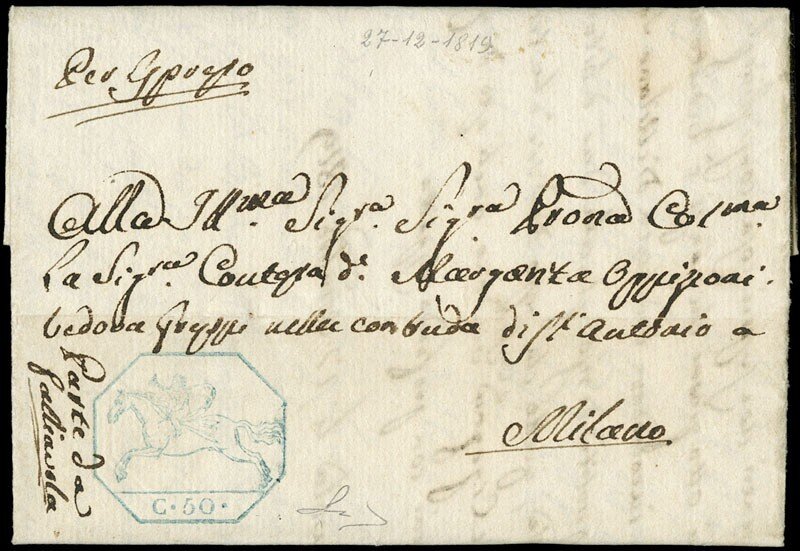 27-12-1819
Per Espresso
Alla Ill.ma Sigra. Sigra Prona Colma.
La Sigra. Contessa Da. Margarita Oppizzoni
vedova Greppi nella contrada di St. Antonio a
Milano
Parte da
Galliavola
C. 50.